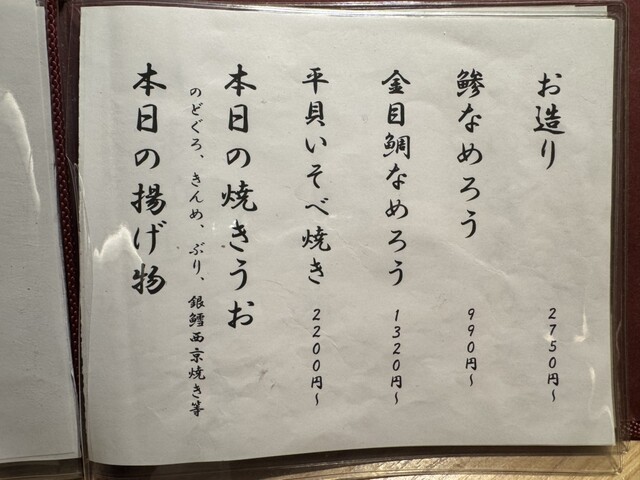 お造り 2750円~
鰺なめろう 990円~
金目鯛なめろう 1320円~
平貝いそべ焼き 2200円~
本日の焼きうお
のどぐろ、きんめ、ぶり、銀鱈西京焼き等
本日の揚げ物